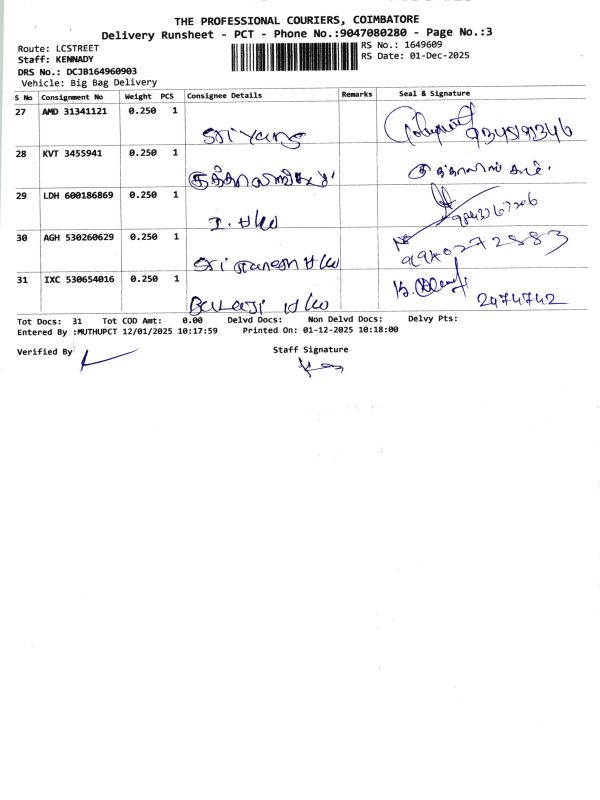 THE PROFESSIONAL COURIERS, COIMBATORE
Delivery Runsheet - PCT - Phone No.:9047080280 - Page No.:3
Route: LCSTREET
Staff: KENNADY
DRS No.: DCJB164960903
Vehicle: Big Bag Delivery
RS No.: 1649609
RS Date: 01-Dec-2025
S No Consignment No Weight PCS Consignee Details Remarks Seal & Signature
27 AMD 31341121 0.250 1
Sri Yang
28 KVT 3455941 0.250 1
29 LDH 600186869 0.250 1
30 AGH 530260629 0.250 1
Sri Ganesh
31 IXC 530654016 0.250 1
Balaji
2474742
Tot Docs: 31 Tot COD Amt: 0.00 Delvd Docs: Non Delvd Docs: Delvy Pts:
Entered By :MUTHUPCT 12/01/2025 10:17:59 Printed On: 01-12-2025 10:18:00
Verified By
Staff Signature